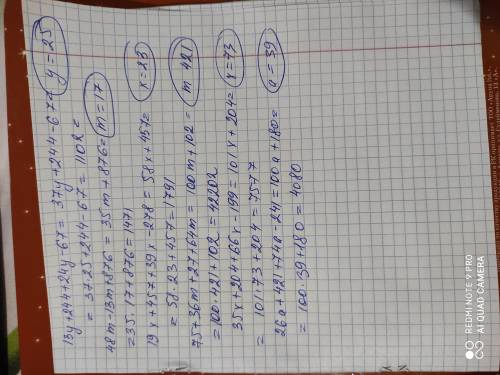 13y+244+24y-67= 37y+244-67= y=25
= 37·25+244-67= 1102=
48m-13m+876= 35m+876= m=17
=35·17+876=1471
19x+757+39x-278= 58x+457= x=23
= 58·23+457=1791
75+36m+27+64m= 100m+102= m 421
=100·421+102= 42202
35x+204+66x-199= 101x+204= x=73
= 101·73+204= 7577
26a+421+74a-241=100a+180= a=39
= 100·39+180= 4080
REDMI NOTE 9 PRO
AI QUAD CAMERA